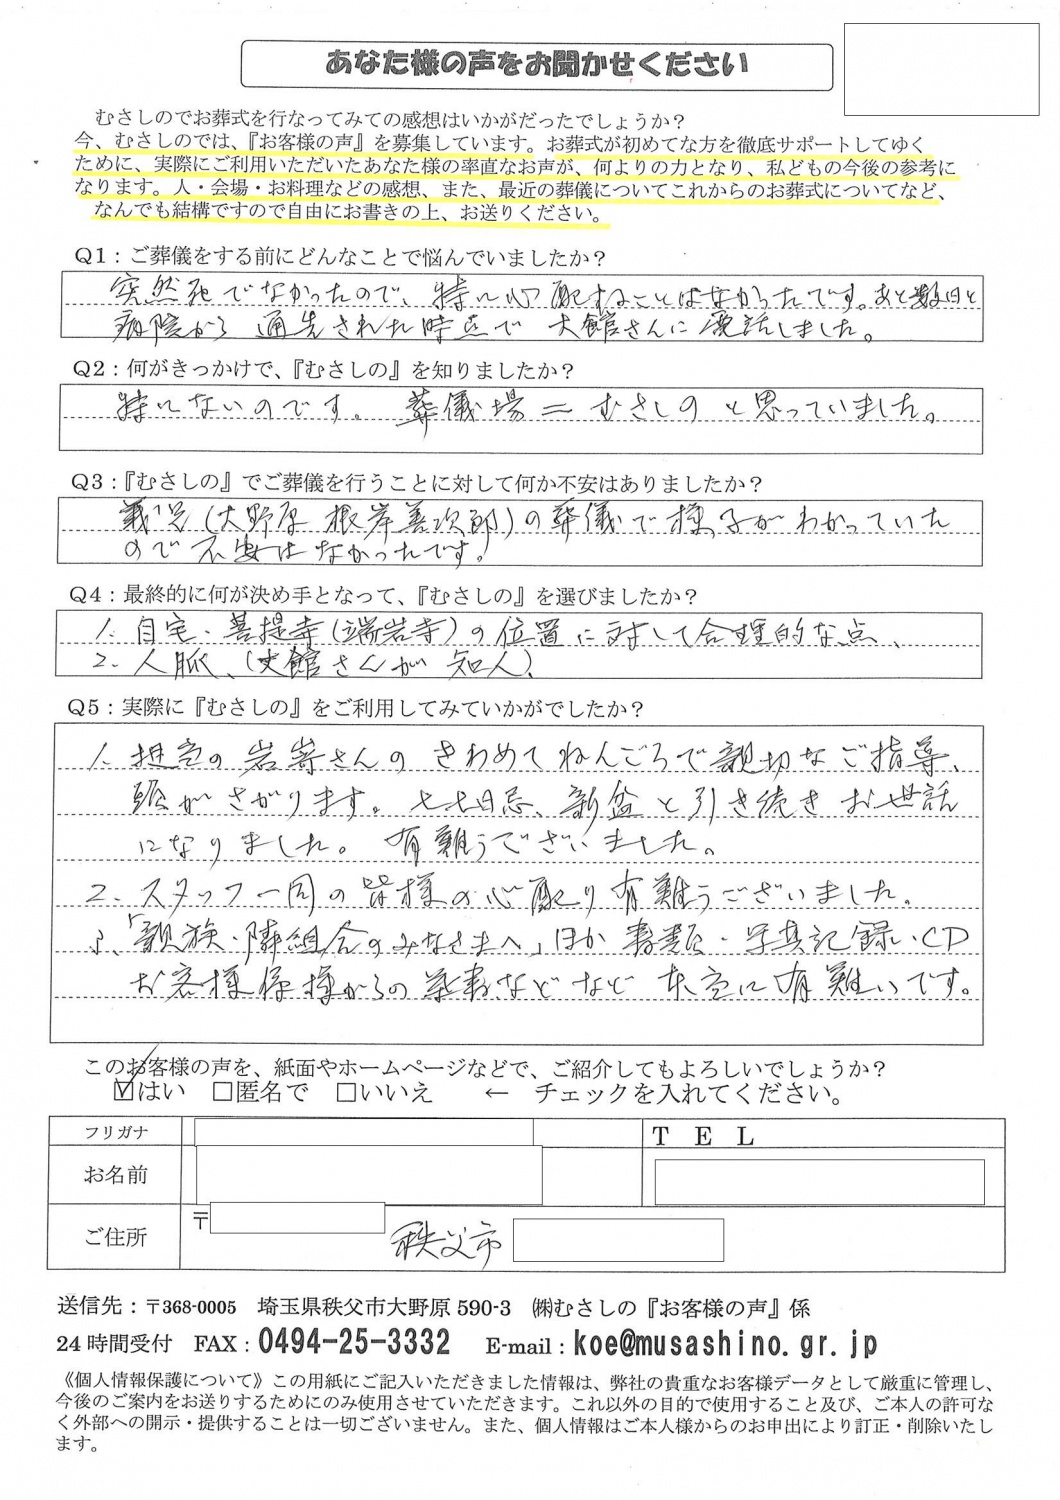 あなた様の声をお聞かせください
むさしのでお葬式を行なってみての感想はいかがだったでしょうか？
今、むさしのでは、『お客様の声』を募集しています。お葬式が初めてな方を徹底サポートしてゆく
ために、実際にご利用いただいたあなた様の率直なお声が、何よりの力となり、私どもの今後の参考に
なります。人・会場・お料理などの感想、また、最近の葬儀についてこれからのお葬式についてなど、
なんでも結構ですので自由にお書きの上、お送りください。
Q1：ご葬儀をする前にどんなことで悩んでいましたか？
突然死でなかったので、特に心配することはなかったです。あと数日と
病院から通告された時点で 大館さんに電話しました。
Q2：何がきっかけで、『むさしの』を知りましたか？
特にないのです。 葬儀場＝むさしの と思っていました。
Q3：『むさしの』でご葬儀を行うことに対して何か不安はありましたか？
義兄(大野原 根岸善次郎)の葬儀で様子がわかっていた
ので不安はなかったです。
Q4：最終的に何が決め手となって、『むさしの』を選びましたか？
1. 自宅・菩提寺(端岩寺)の位置に対して合理的な点、
2. 人脈、(大館さんが 知人)
Q5：実際に『むさしの』をご利用してみていかがでしたか？
1. 担当の岩嵜さんの きわめてねんごろで親切なご指導、
頭がさがります。七七日忌、新盆と引き続きお世話
になりました。 有難うございました。
2. スタッフ一同の皆様の心配り有難うございました。
3.「親族・隣組合のみなさまへ」ほか 書類・写真記録・CD
お客様 様からの などなど 本当に有難いです。
このお客様の声を、紙面やホームページなどで、ご紹介してもよろしいでしょうか？
☑はい □匿名で □いいえ ← チェックを入れてください。
フリガナ ＴＥＬ
お名前
〒
ご住所 秩父市
送信先：〒368-0005 埼玉県秩父市大野原 590-3 ㈱むさしの『お客様の声』係
24 時間受付 FAX：0494-25-3332 E-mail：koe@musashino.gr.jp
《個人情報保護について》この用紙にご記入いただきました情報は、弊社の貴重なお客様データとして厳重に管理し、
今後のご案内をお送りするためにのみ使用させていただきます。これ以外の目的で使用すること及び、ご本人の許可な
く外部への開示・提供することは一切ございません。また、個人情報はご本人様からのお申出により訂正・削除いたし
ます。